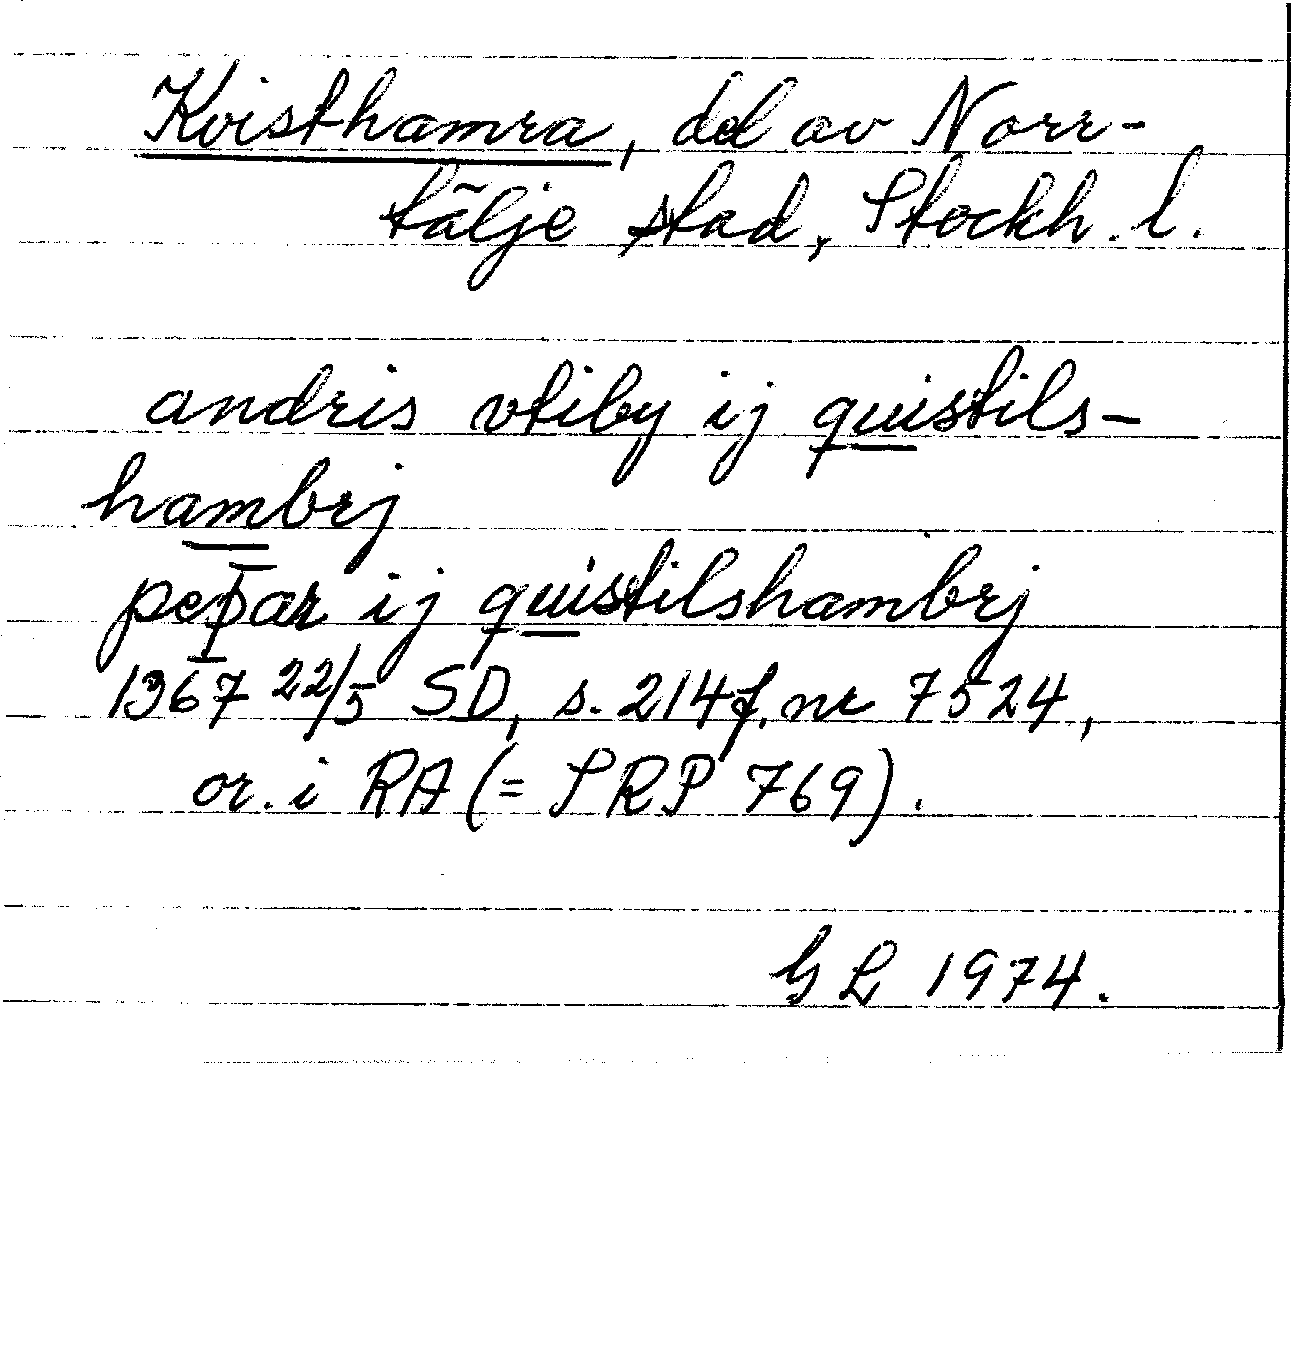 Kvisthamra, del av Norr-
tälje stad, Stockh. l.
andris vtiby ij quistils-
hambrj
peþar ij quistilshambrj
1367 22/5 SD, s. 214f. nr 7524,
or. i RA (= SRP 769).
GL 1974.